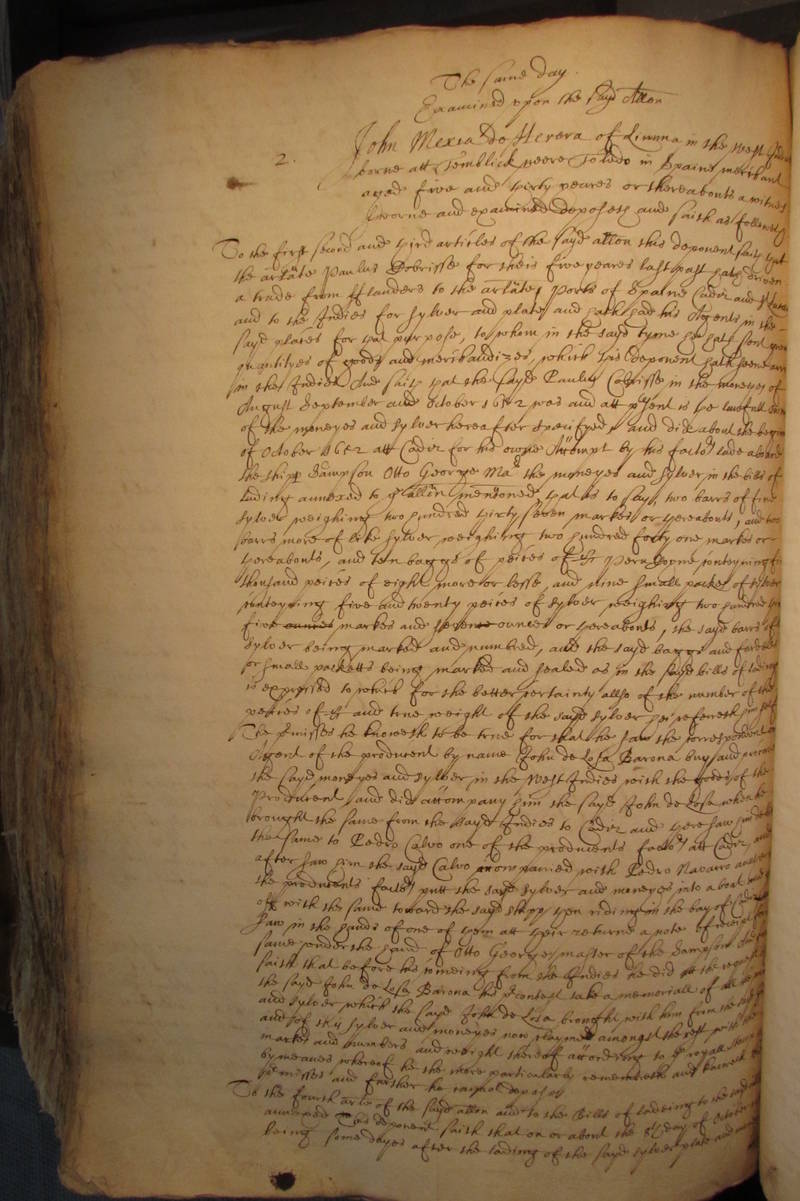 The same day.
Examined upon the sayd Allon
2.
John Mexia do Herera of Limma in the West
borne att Temblick neere Toledo in Spaine merchant
aged five and thirty yeares or thereabouts a witnes
sworne and examined deposeth and saith as followeth
To the first second and third articles of the sayd allon this deponent saith that
the arlate Paulus Dobrisse for theis five yeares last past hath driven
a trade from fflanders to the arlate ports of Spaine Cadiz and
and to the Indies for sylver and plate and hath had his Agents in the
sayd places for that purpose, to whom in the sayd tyme he hath sent
quantityes of goods and merchandizes, which this deponent hath seene
in the Indies And saith that the sayd Paulus Dobrisse in the moneths of
August September and October 1652 was and att p'sent is the lawfull
of the moneyes and sylver hereafter specifyed, and did about the
of October 1652 att Cadiz for his owne Accompt by his factor lade aboard
the shipp Sampson Otto George Ma.r the moneyes and sylver in the bills of
lading annexed to y.e allon mentoned, that is to say, two barrs of fine
sylver weighing two hundred thirty seven markes or thereabouts, and two
barrs more of like sylver weighing two hundred forty one markes or
thereabouts, and ten baggs of peices of Peru Coyne conteyning
thousand peices of eight more or lesse, and nine small packets of sylver
conteyning five and twenty peices of sylver weighing two hundred
five ounces markes and seven ounces or thereabouts, the sayd barrs of
sylver being marked and numbred, and the sayd baggs and
or small packetts being marked and sealed as in the sayd bills of lading
is expressed to which for the better certainty allso of the number of the
peeces of and true weight of the sayd sylver hee referreth him self
The p'misses he knoweth to be true for that he saw the correspondent
Agent of the producent by name John de Losa Barona buy and
the sayd moneyes and sylver in the West Indies with the goods of the
Producent, and did accompany him the sayd John de Losa when he
brought the same from the sayd Indies to Cadiz and there saw him
the same to Pedro Calvo one of the producents factors att Cadiz, and
after saw him the sayd Calvo accompanied with Pedro Navarro
the producents factor putt the sayd sylver and moneyes into a boat
off with the same toward the sayd shipp then riding in the bay of Cadiz
saw in the hands of one of them att their returne a note of receipt
same under the hand of Otto George master of the Sampson
saith that before his comeing from the Indies he did att the request
the sayd John de Losa Barona his take a memoriall of all
and sylver which the sayd John de Losa brought with him from the
and of this sylver and moneyes now claymed amongst the rest with the
markes and numbers and weight thereof according to y.e royall
by meanes whereof he the more particularly remembreth and knoweth
p'misses and further he cannot depose
To the fourth arle of the sayd allon and to the Bills of ladeing to the
annexed This deponent saith that on or about the day of October
being some dayes after the lading of the sayd sylver plate and